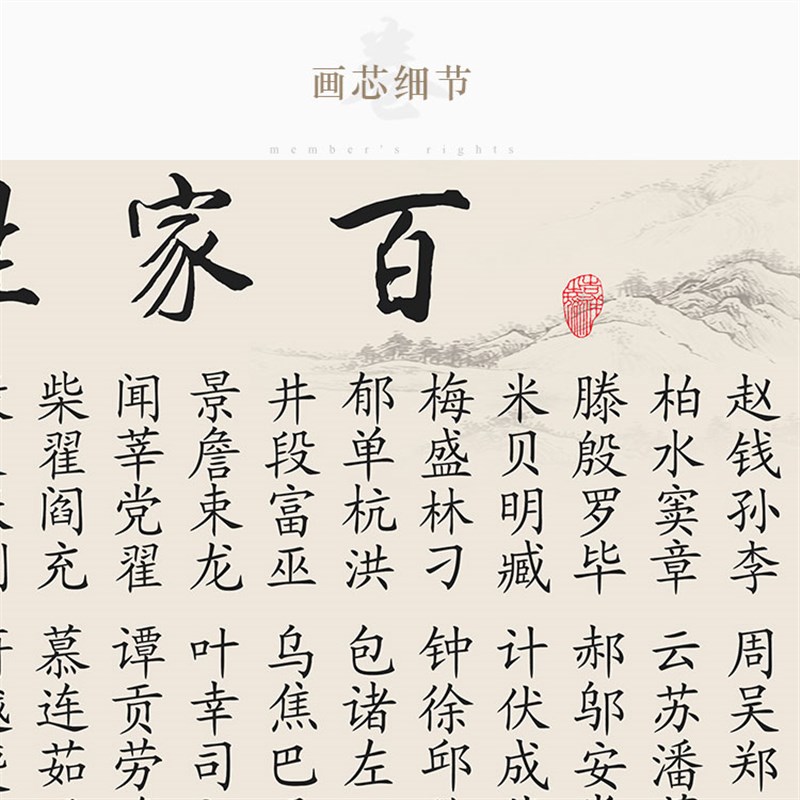 画芯细节
member's rights
百家
赵钱孙李
柏水窦章
滕殷罗毕
米贝明臧
梅盛林刁
郁单杭洪
井段富巫
景詹束龙
闻莘党翟
柴瞿阎充
周吴郑
云苏潘
郝邬安
计伏成
钟徐邱
包诸左
乌焦巴
叶幸司
谭贡劳
慕连茹